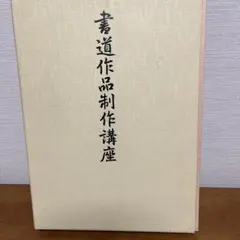 書道作品制作講座